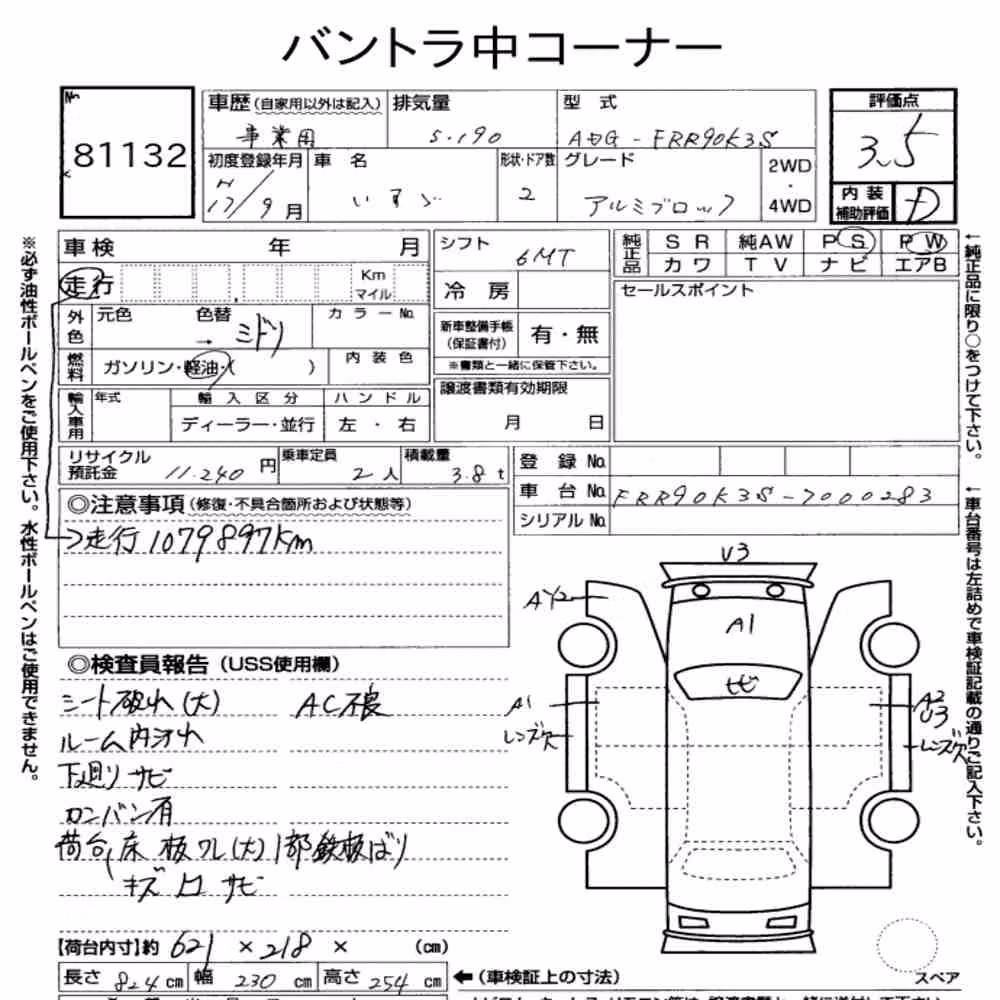 バントラ中コーナー
No 81132
車歴（自家用以外は記入） 事業用
排気量 5.190
型式 ADG-FRR90K3S
評価点 3.5
初度登録年月 H17/9月
車名 いすゞ
形状・ドア数 2
グレード アルミブロック
2WD・4WD
内装補助評価 D
車検 年 月
シフト 6MT
純正品 SR 純AW PS PW
カワ TV ナビ エアB
走行 Km マイル
冷房
セールスポイント
外色 元色 色替 → ミドリ カラーNo.
新車整備手帳（保証書付） 有・無
※書類と一緒に保管下さい。
燃料 ガソリン・軽油・（ ） 内装色
譲渡書類有効期限 月 日
輸入車用 年式 輸入区分 ハンドル
ディーラー・並行 左・右
リサイクル預託金 11.240円 乗車定員 2人 積載量 3.8t
登録No.
車台No. FRR90K3S-7000283
シリアルNo.
◎注意事項（修復・不具合箇所および状態等）
→走行1079897Km
◎検査員報告（USS使用欄）
シート破れ(大) AC不良
ルーム内汚れ
下廻りサビ
カンバン有
荷台、床板ワレ(大)1部鉄板ばり
キズ凹サビ
【荷台内寸】約 621×218× (cm)
長さ 824cm 幅 230cm 高さ 254cm ←（車検証上の寸法）
U3
AY2
A1
トビ
A1
レンズ欠
A2
U3
レンズ欠
スペア
※必ず油性ボールペンをご使用下さい。水性ボールペンはご使用できません。
←純正品に限り○をつけて下さい。
←車台番号は左詰めで車検証記載の通りご記入下さい。